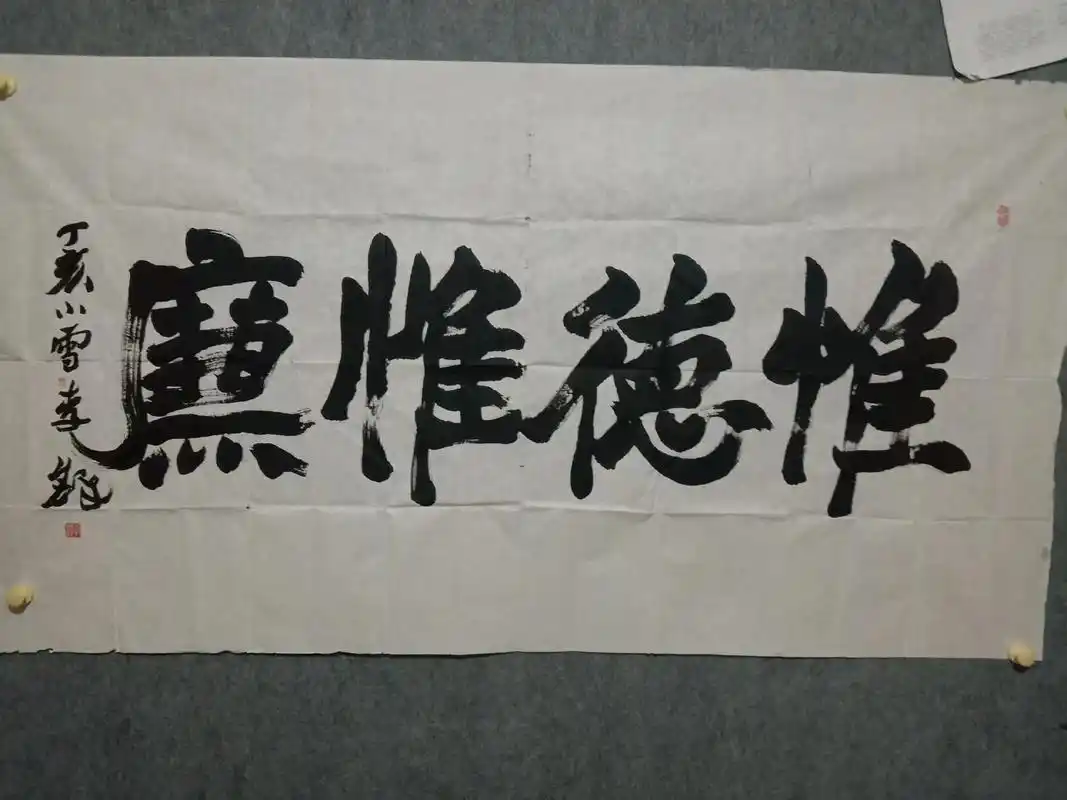 惟德惟廉
丁亥小雪李